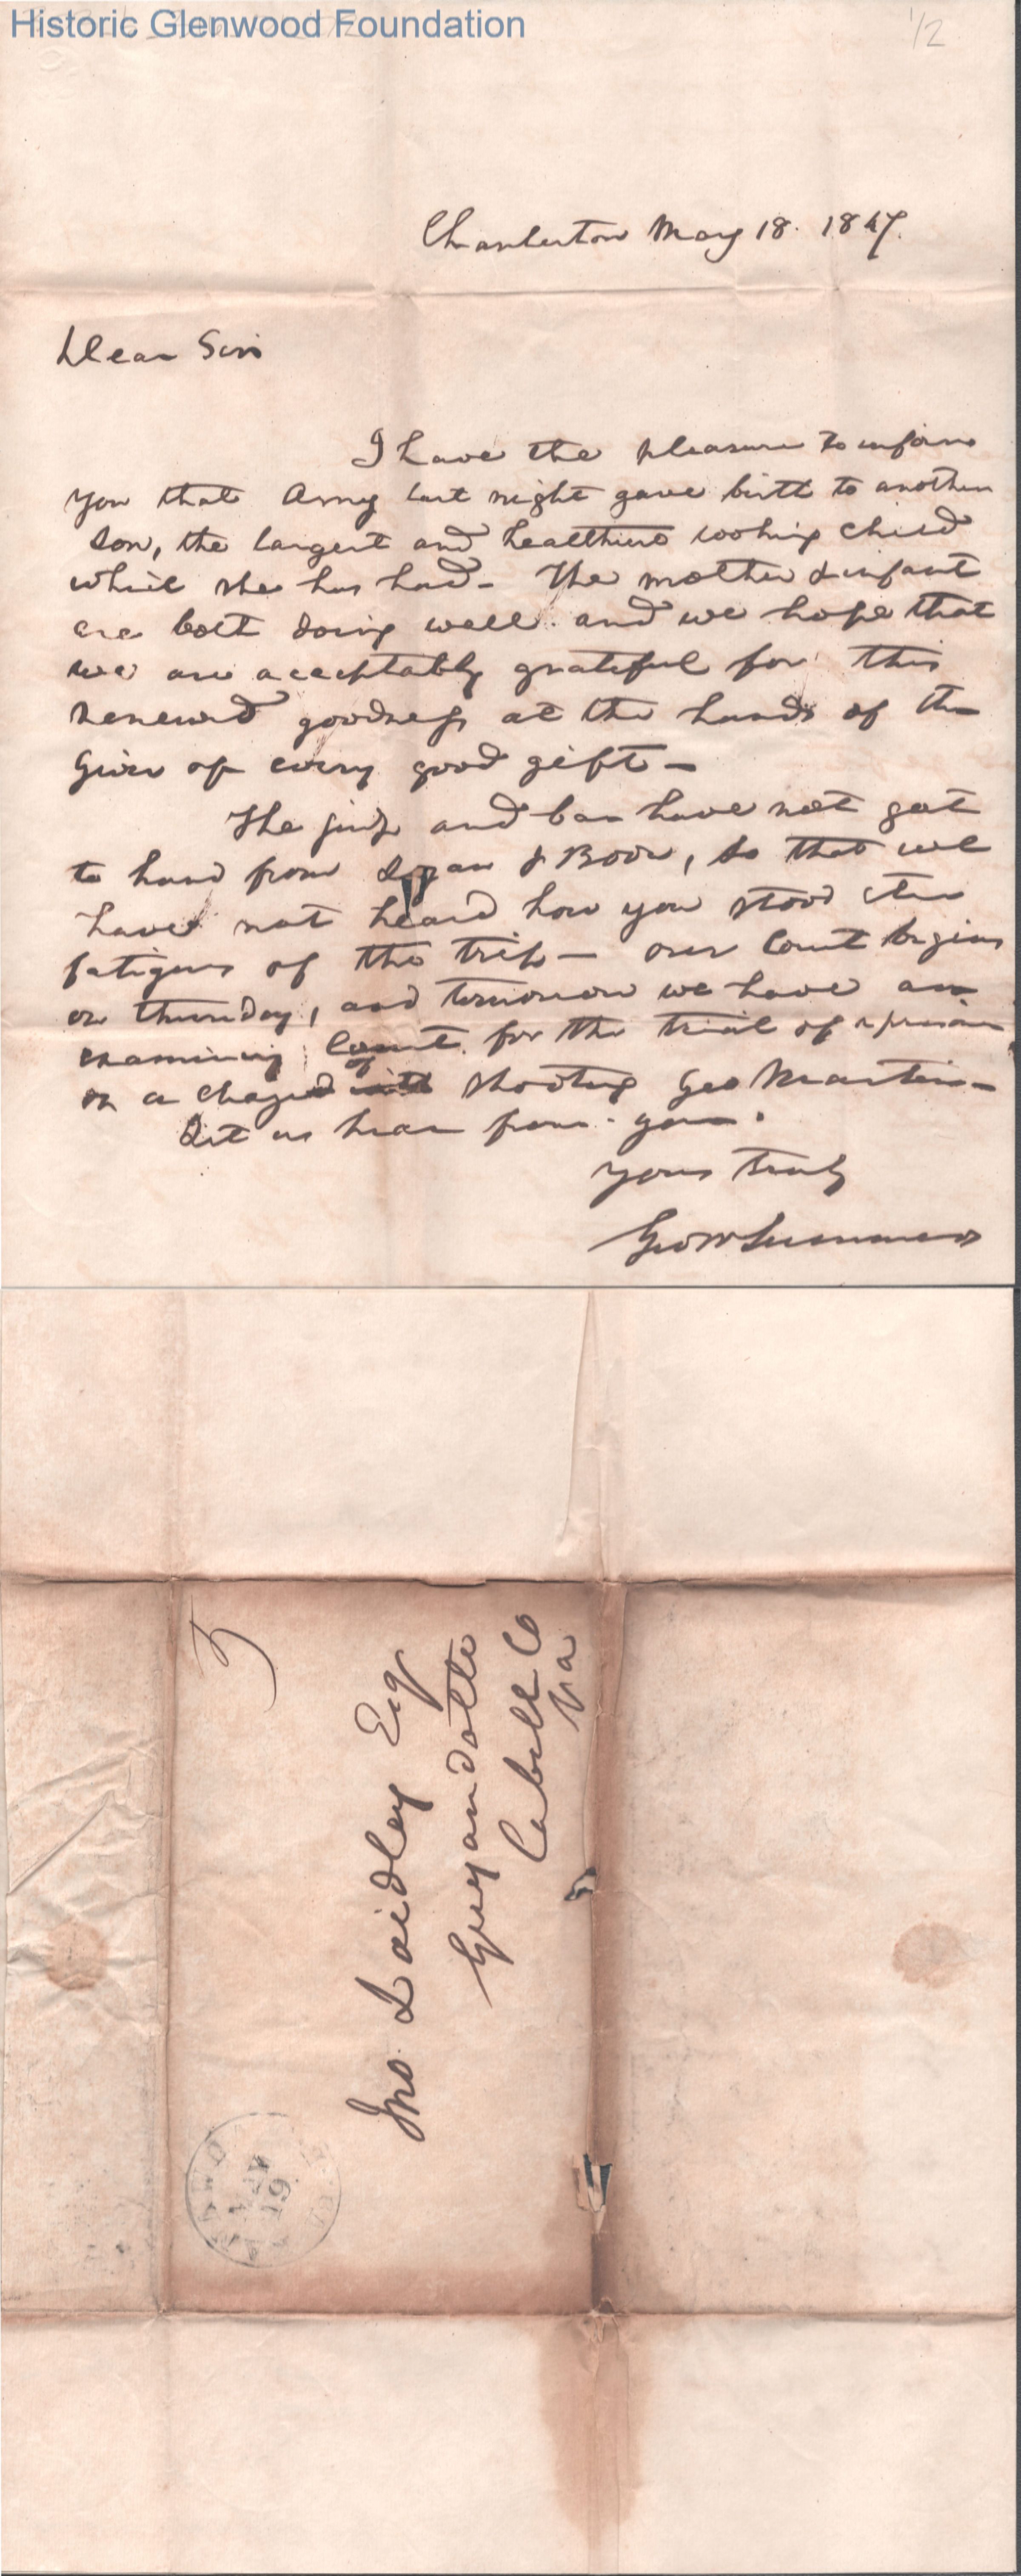 Historic Glenwood Foundation
1/2
Charleston May 18. 1847.
Dear Sir
I have the pleasure to inform
you that Amy last night gave birth to another
son, the largest and healthiest looking child
which she has had - The mother & infant
are both doing well and we hope that
we are acceptably grateful for this
renewed goodness at the hands of the
Giver of every good gift -
The judge and bar have not got
to hand from Logan & Boon, so that we
have not heard how you stood the
fatigues of the trip - our Court begins
on thursday, and tomorrow we have an
examining Court for the trial of a person
on a charge of shooting Geo Martin -
Let us hear from you.
yours truly
Geo W Summers
5
Jno. Laidley Esq
Guyandotte
Cabell Co
Va
MAY
19